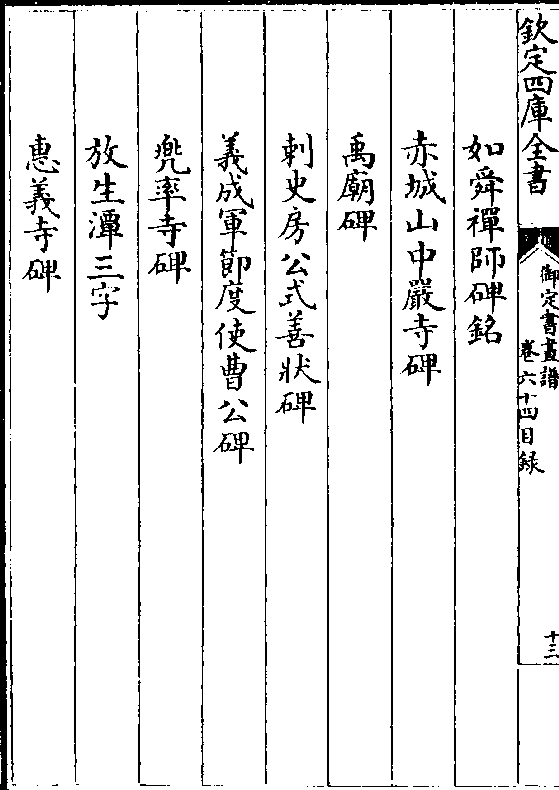 欽定四庫全書
御定書畫譜
卷六十四目録
十三
如舜禪師碑銘
赤城山中巖寺碑
禹廟碑
刺史房公式善狀碑
義成軍節度使曹公碑
兜率寺碑
放生潭三字
惠義寺碑